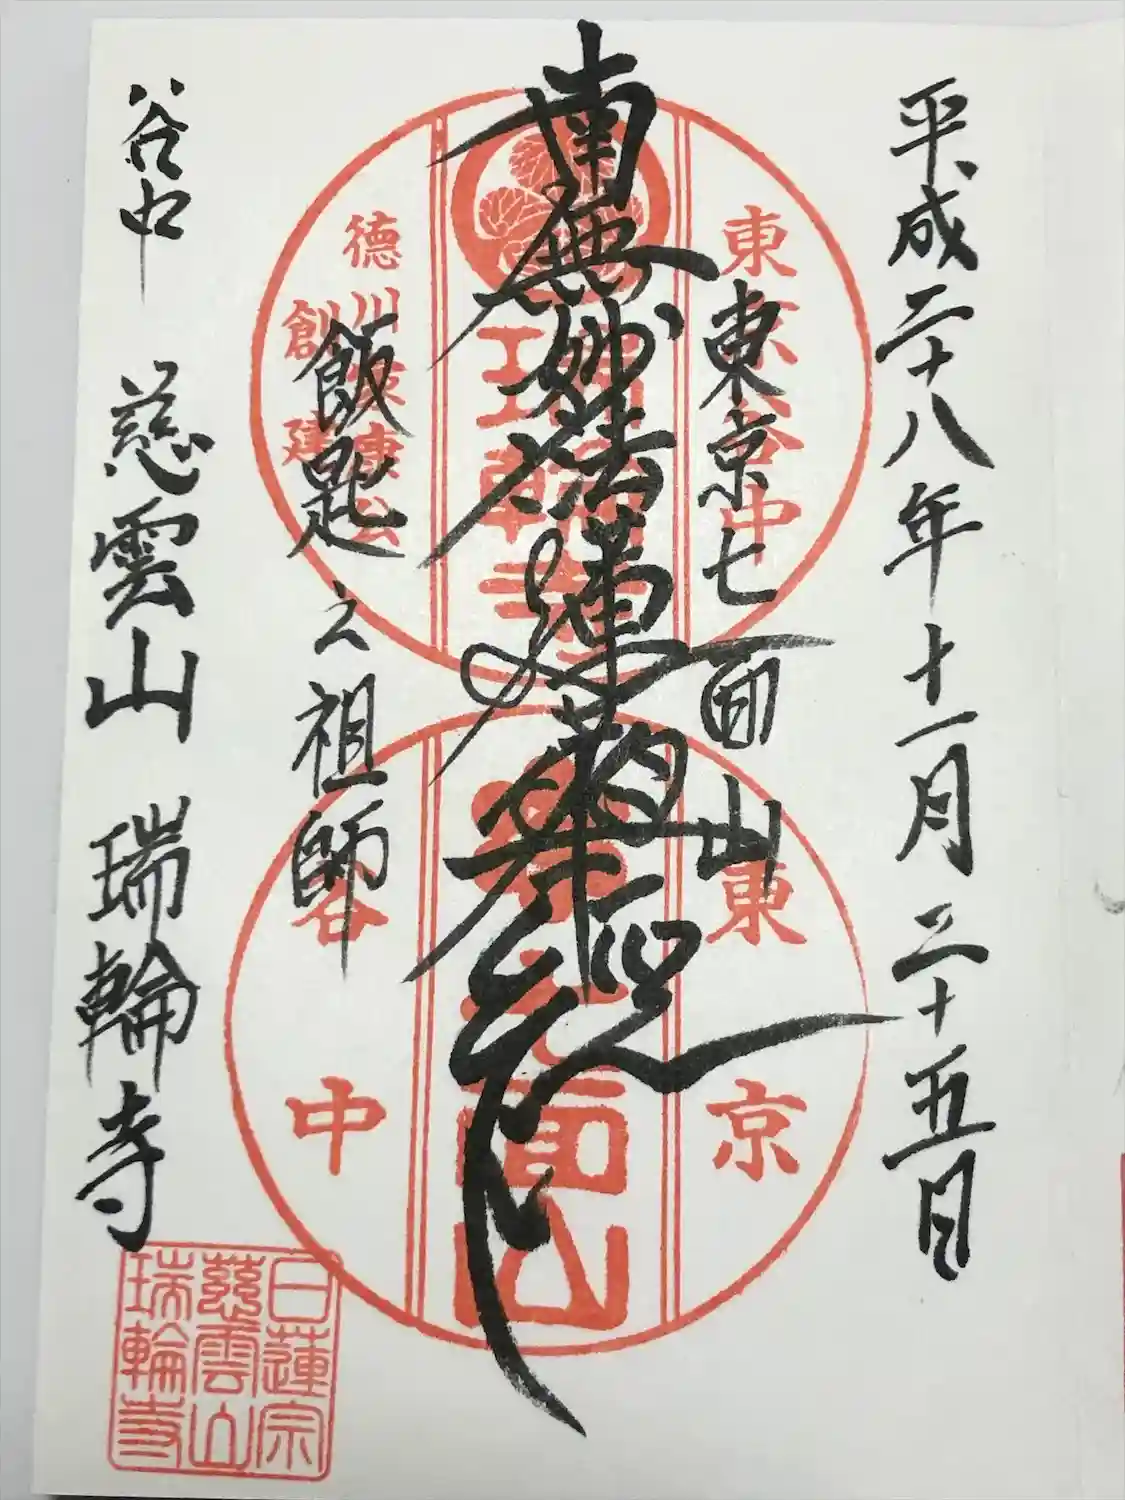 平成二十八年十一月二十五日
東京七面山
南無妙法蓮華経
飯匙之祖師
谷中 慈雲山 瑞輪寺
東京谷中
瑞輪寺
徳川家康公
創建
東京
七面山
谷中
日蓮宗
慈雲山
瑞輪寺